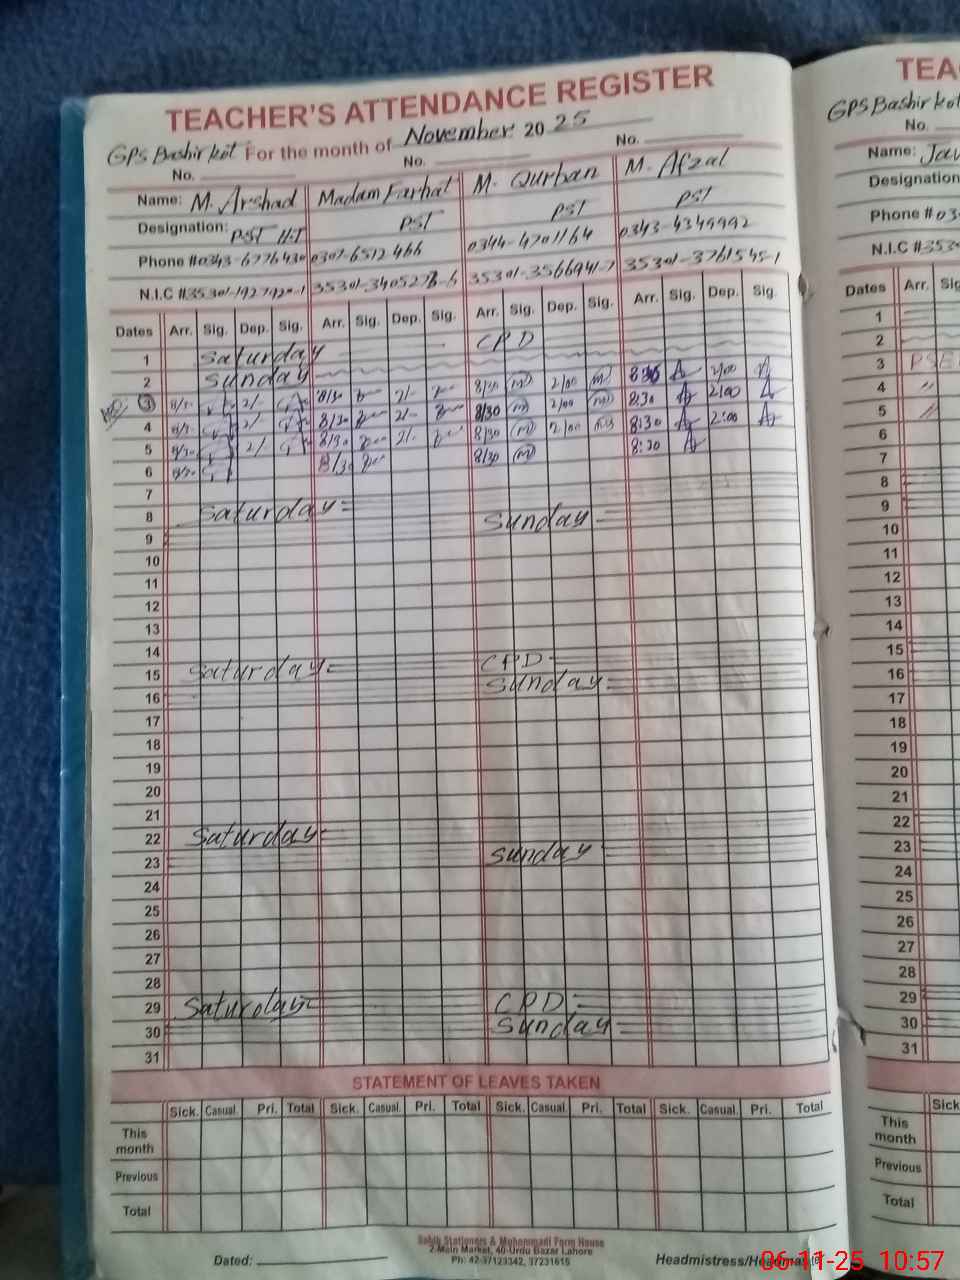 TEACHER'S ATTENDANCE REGISTER
GPS Bashir kot For the month of November 2025
No. No. No.
Name: M. Arshad Madam Farhat M. Qurban M. Afzal
Designation: PST H.T PST PST PST
Phone # 0343-6776430 0307-6512466 0344-4701164 0343-4349992
N.I.C # 35301-1927920-1 35301-3405278-6 35301-3566941-7 35301-3761545-1
Dates Arr. Sig. Dep. Sig. Arr. Sig. Dep. Sig. Arr. Sig. Dep. Sig. Arr. Sig. Dep. Sig.
1 Saturday CPD
2 Sunday
3 8/30 2/- 8/30 2/- 8/30 2/00 8:30 2/00
4 8/30 2/- 8/30 2/- 8/30 2/00 8:30 2:00
5 8/30 2/- 8/30 2/- 8/30 2/00 8:30 2:00
6 8/30 8/30 8/30 8:30
7
8 Saturday
9 Sunday
10
11
12
13
14
15 Saturday CPD
16 Sunday
17
18
19
20
21
22 Saturday
23 Sunday
24
25
26
27
28
29 Saturday CPD
30 Sunday
31
STATEMENT OF LEAVES TAKEN
Sick. Casual. Pri. Total Sick. Casual. Pri. Total Sick. Casual. Pri. Total Sick. Casual. Pri. Total
This month
Previous
Total
Sabih Stationers & Muhammadi Form House
2-Main Market, 40-Urdu Bazar Lahore
Ph: 42-37123342, 37231615
Dated: Headmistress/
TEA
GPS Bashir kot
No.
Name: Jav
Designation
Phone # 03
N.I.C # 353
Dates Arr. Sig
1
2
3 PSE
4 "
5 "
6
7
8
9
10
11
12
13
14
15
16
17
18
19
20
21
22
23
24
25
26
27
28
29
30
31
Sick
This month
Previous
Total
06-11-25 10:57